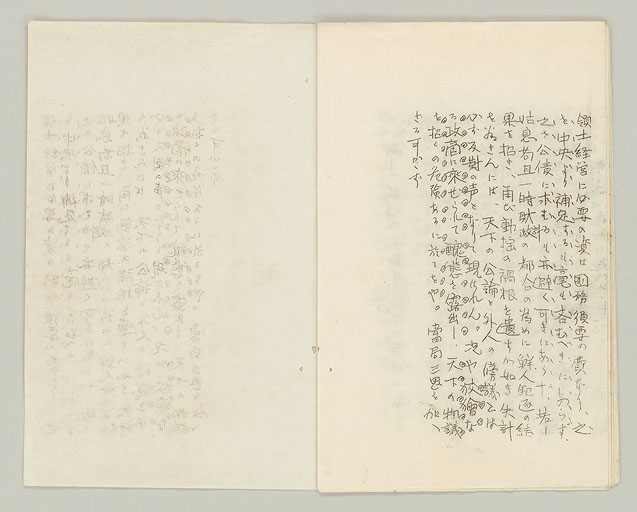 領土経営に必要の資は国務須要の費なり、之
を中央より補足するも、毫も吝むべきにあらず、
之を公債に求むるも亦避く可きにあらず、若し
姑息苟且一時財政の都合の為めに鮮人駆逐の結
果を招き、再び動揺の禍根を遺すが如き失計
を為さんには、天下の公論と外人の傍議とは
必ず反対の声となり現はれん。況や放縦な
る政商に乗ぜられて醜態を露出し、天下の物議
を招くの危険あるに於てをや。当局三思を加へ
ざる可からず